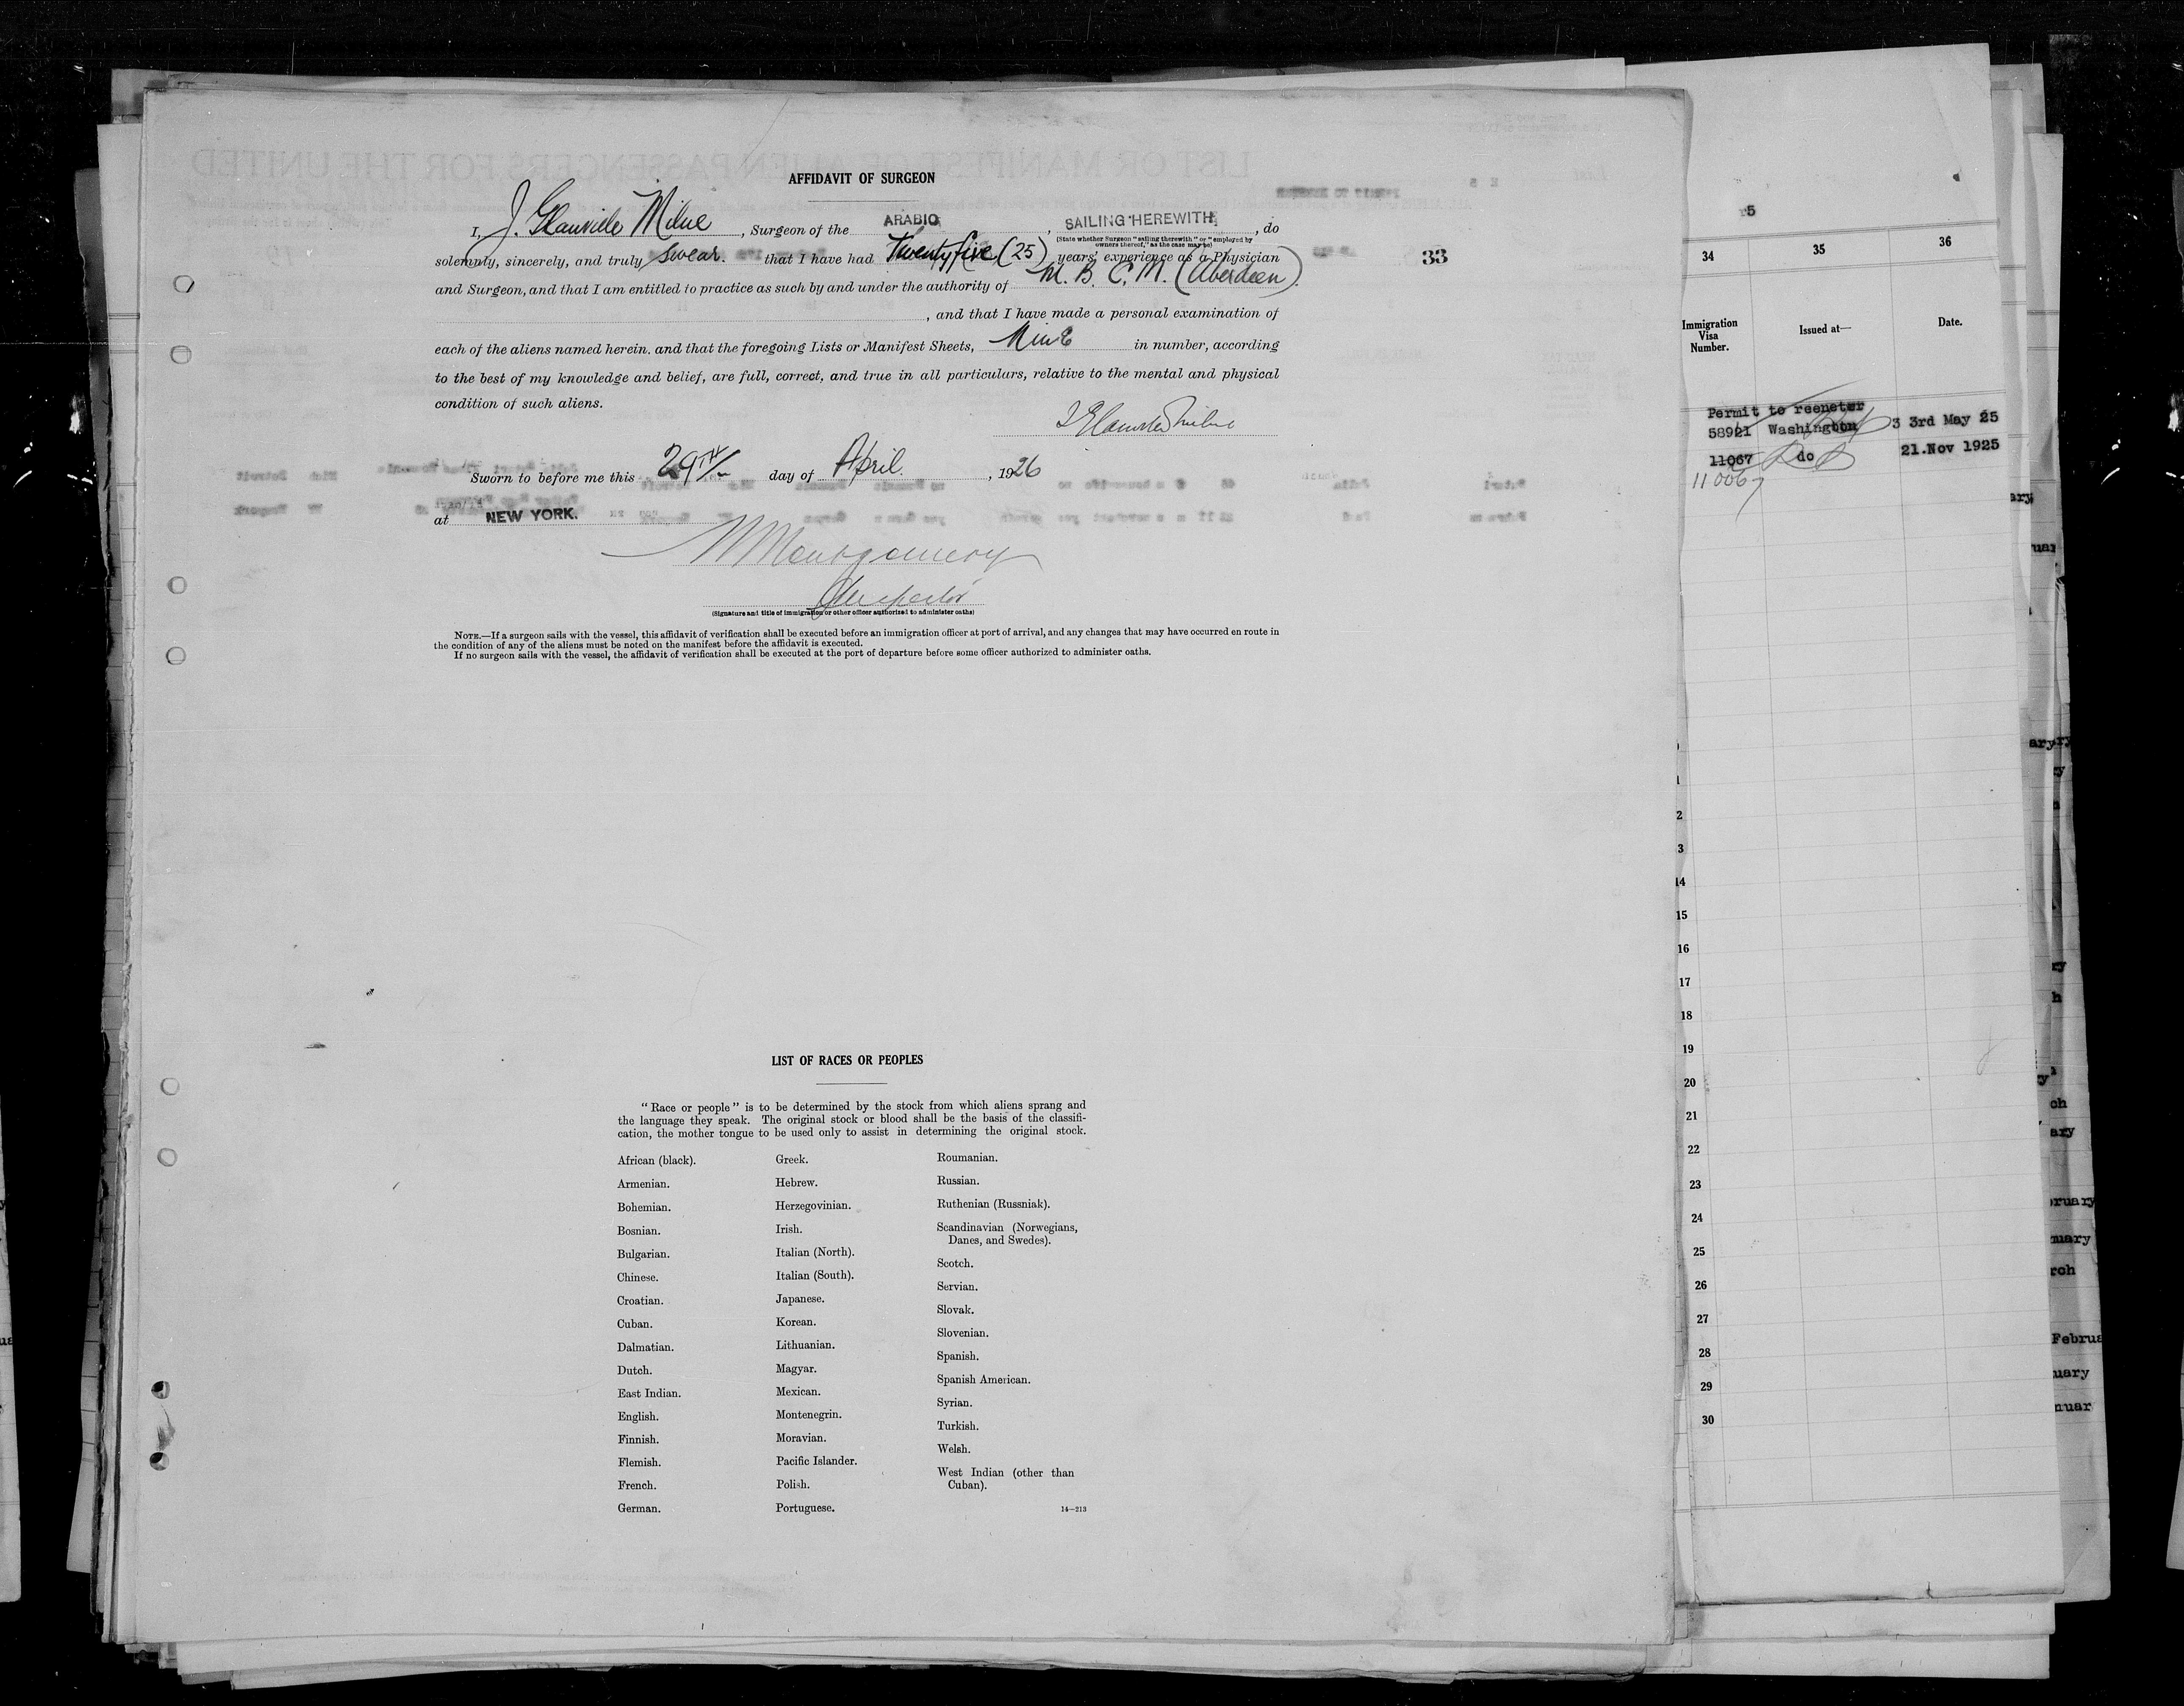 AFFIDAVIT OF SURGEON
I, J. Glanville Milne, Surgeon of the ARABIC, SAILING HEREWITH, do
(State whether Surgeon "sailing therewith" or "employed by
owners thereof," as the case may be)
solemnly, sincerely, and truly swear. that I have had Twenty five (25) years' experience as a Physician
and Surgeon, and that I am entitled to practice as such by and under the authority of M. B. C. M. (Aberdeen).
, and that I have made a personal examination of
each of the aliens named herein. and that the foregoing Lists or Manifest Sheets, Nine in number, according
to the best of my knowledge and belief, are full, correct, and true in all particulars, relative to the mental and physical
condition of such aliens.
J Glanville Milne
Sworn to before me this 29TH day of April, 1926
at NEW YORK.
W Montgomery
Inspector
(Signature and title of immigration or other officer authorized to administer oaths)
NOTE.—If a surgeon sails with the vessel, this affidavit of verification shall be executed before an immigration officer at port of arrival, and any changes that may have occurred en route in
the condition of any of the aliens must be noted on the manifest before the affidavit is executed.
If no surgeon sails with the vessel, the affidavit of verification shall be executed at the port of departure before some officer authorized to administer oaths.
33
LIST OF RACES OR PEOPLES
"Race or people" is to be determined by the stock from which aliens sprang and
the language they speak. The original stock or blood shall be the basis of the classifi-
cation, the mother tongue to be used only to assist in determining the original stock.
African (black).
Armenian.
Bohemian.
Bosnian.
Bulgarian.
Chinese.
Croatian.
Cuban.
Dalmatian.
Dutch.
East Indian.
English.
Finnish.
Flemish.
French.
German.
Greek.
Hebrew.
Herzegovinian.
Irish.
Italian (North).
Italian (South).
Japanese.
Korean.
Lithuanian.
Magyar.
Mexican.
Montenegrin.
Moravian.
Pacific Islander.
Polish.
Portuguese.
Roumanian.
Russian.
Ruthenian (Russniak).
Scandinavian (Norwegians,
Danes, and Swedes).
Scotch.
Servian.
Slovak.
Slovenian.
Spanish.
Spanish American.
Syrian.
Turkish.
Welsh.
West Indian (other than
Cuban).
14—213
r5
34 35 36
Immigration
Visa
Number.
Issued at—
Date.
Permit to reeneter
58921 Washington 3 3rd May 25
11067 do 21.Nov 1925
11067
2
3
14
15
16
17
18
19
20
21
22
23
24
25
26
27
28
29
30